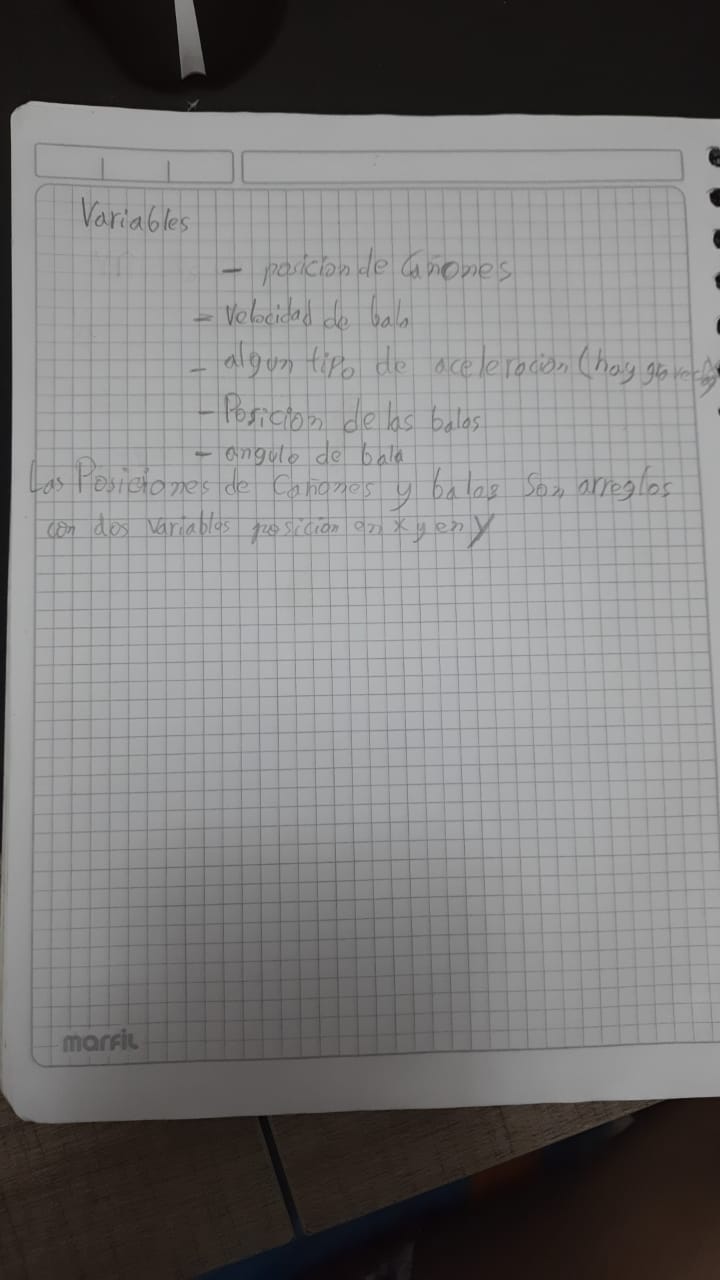 Variables
- posicion de Cañones
- Velocidad de bala
- algun tipo de aceleracion (hay gravedad)
- Posicion de las balas
- angulo de bala
Las Posiciones de Cañones y balas son arreglos
con dos variables posicion en x y en y
marfil